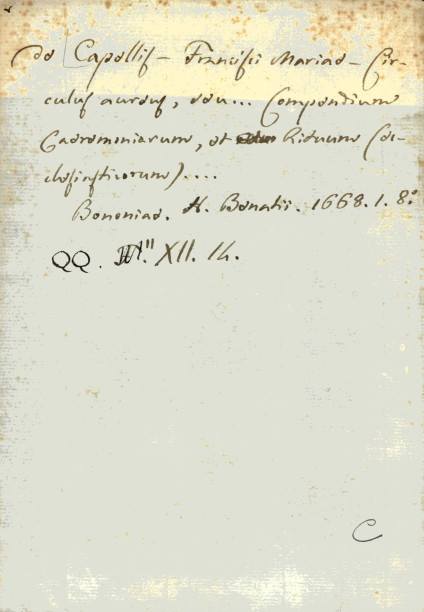 de Capellis - Francisci Mariae - Cir-
culus aureus, seu... Compendium
Caeremoniarum, et Rituum Ec-
clesiasticorum)....
Bononiae. H. Bonatii. 1668. 1. 8.º
QQ. XII. 14.
C